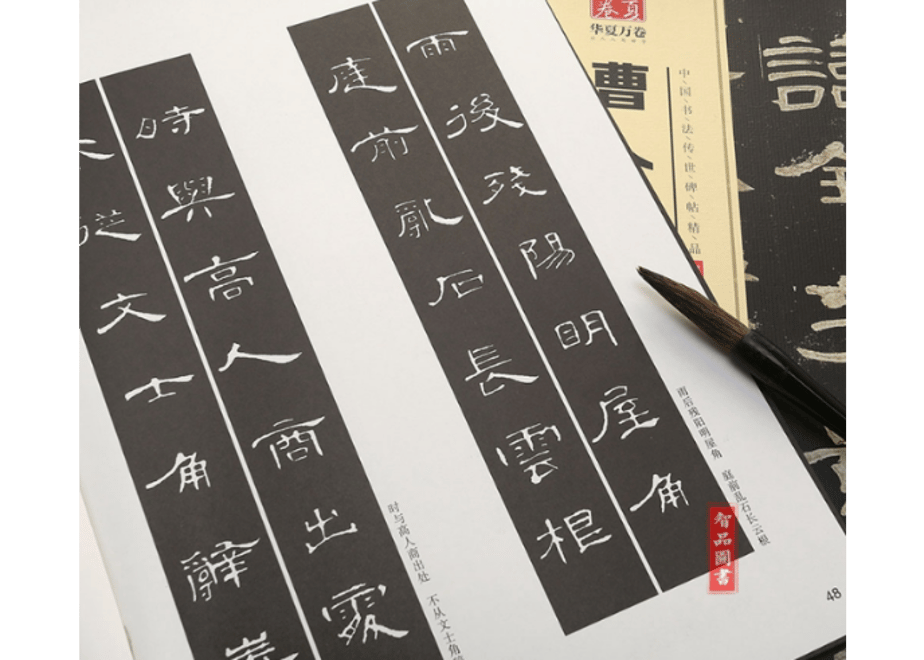 华夏万卷
曹
中国书法传世碑帖精品
雨後殘陽明屋角
庭前亂石長雲根
雨后残阳明屋角 庭前乱石长云根
時與高人商出處
從文士角辭
时与高人商出处 不从文士角
智品圖書
48